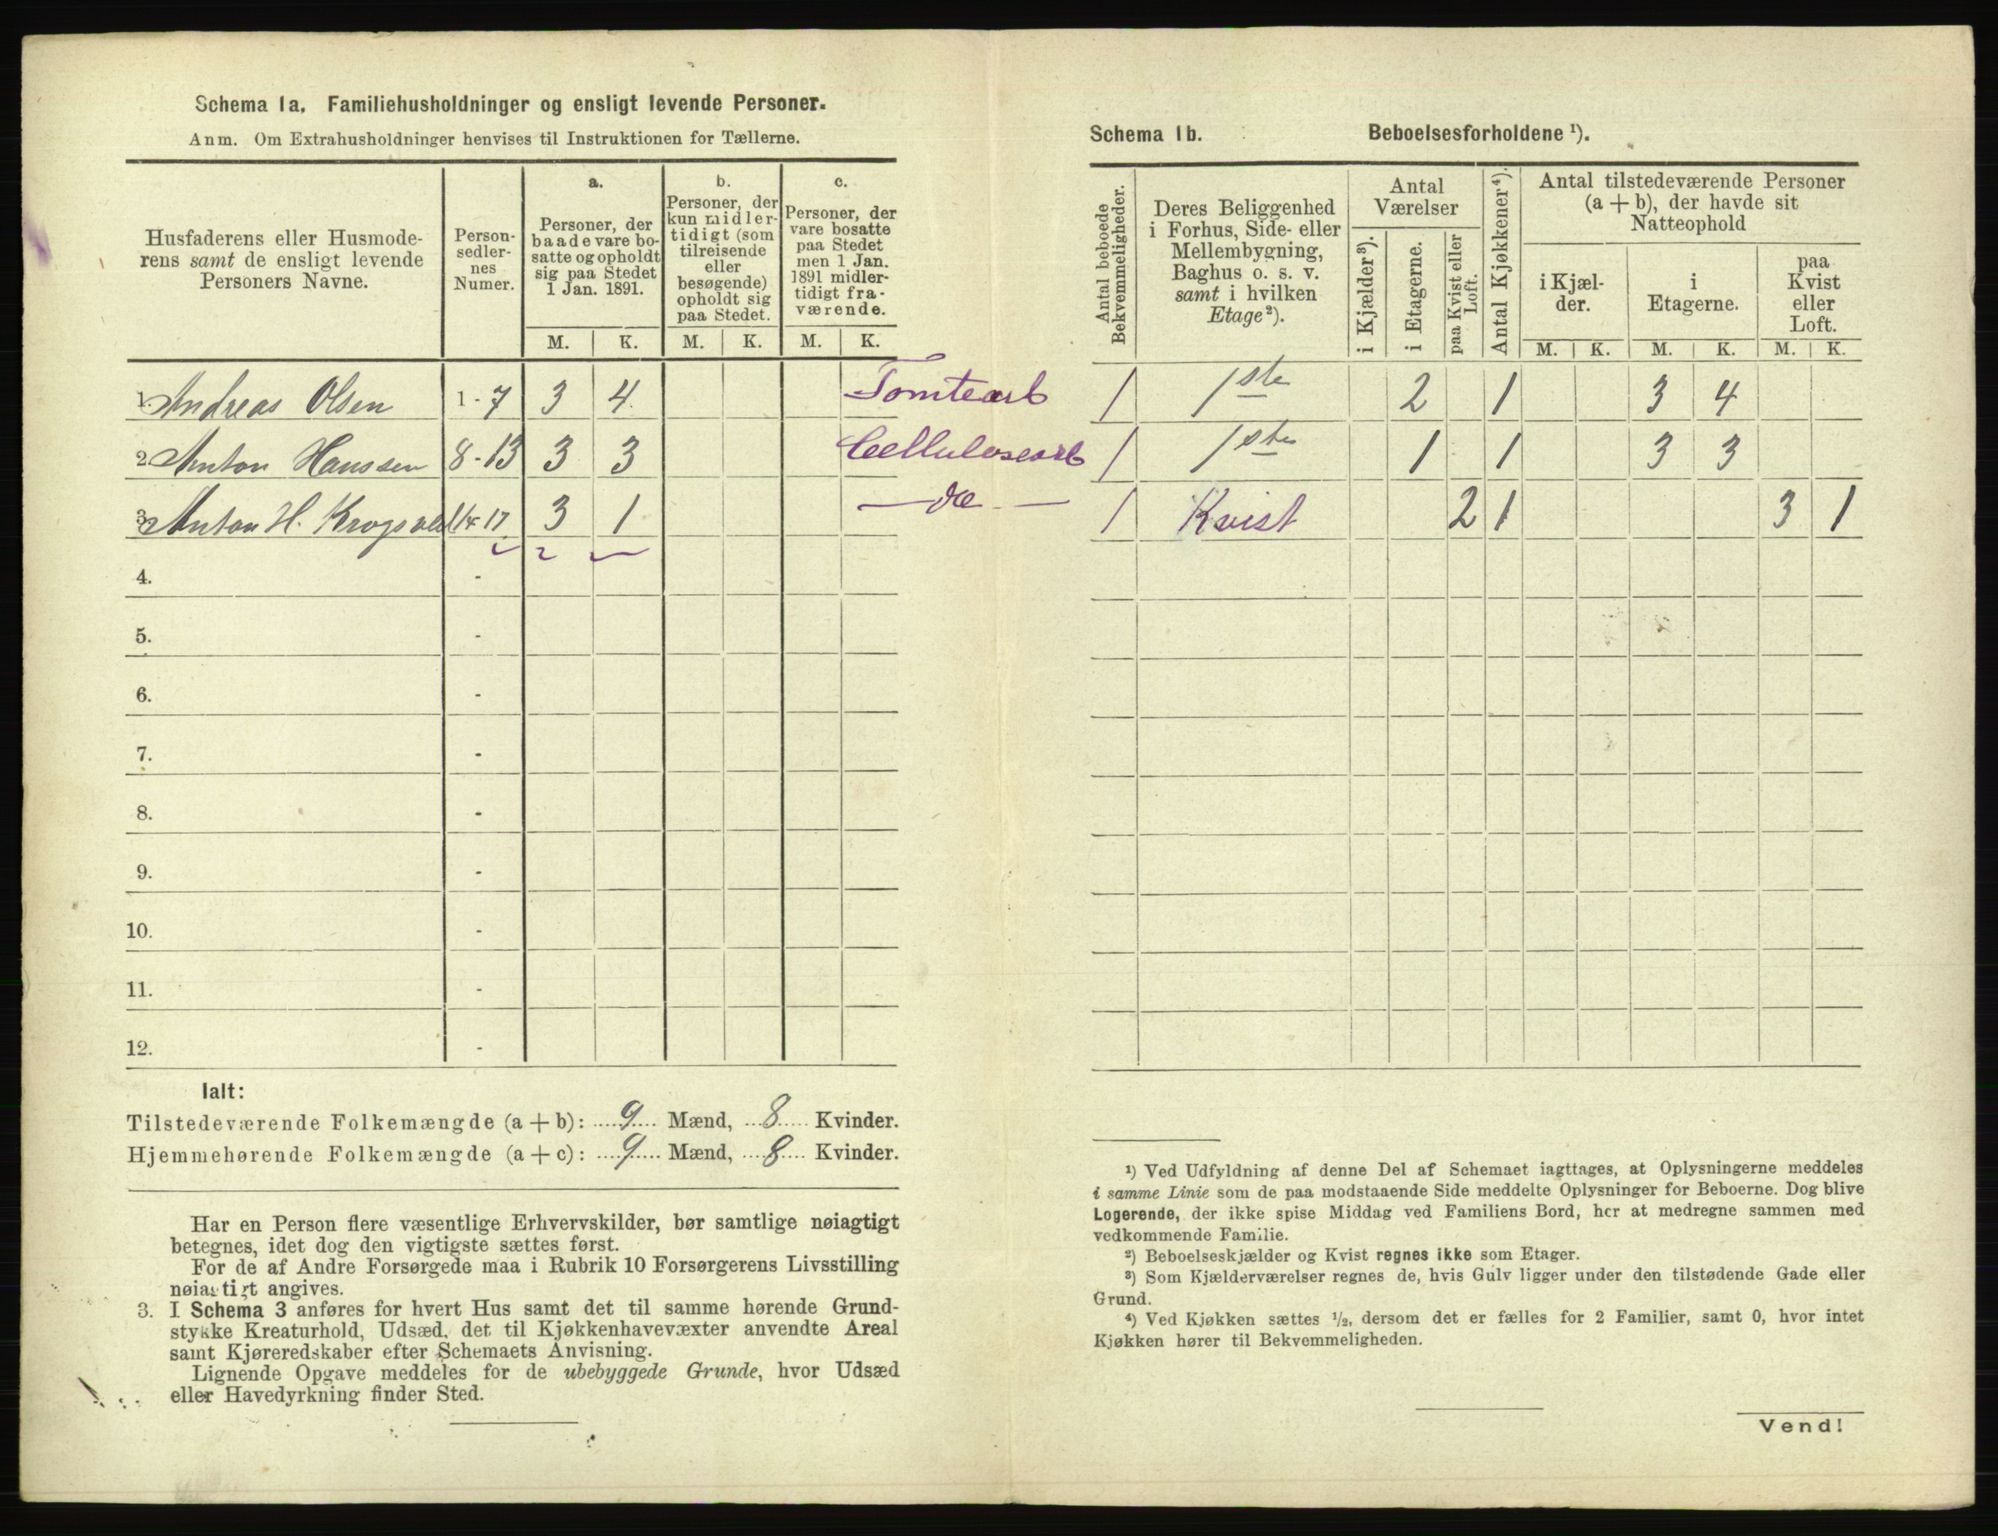 Schema 1a. Familiehusholdninger og ensligt levende Personer.
Anm. Om Extrahusholdninger henvises til Instruktionen for Tællerne.
Husfaderens eller Husmode-
rens samt de ensligt levende
Personers Navne.
Person-
sedler-
nes
Numer.
a.
Personer, der
baade vare bo-
satte og opholdt
sig paa Stedet
1 Jan. 1891.
b.
Personer, der
kun midler-
tidigt (som
tilreisende
eller
besøgende)
opholdt sig
paa Stedet.
c.
Personer, der
vare bosatte
paa Stedet
men 1 Jan.
1891 midler-
tidigt fra-
værende.
M. K. M. K. M. K.
1. Andreas Olsen 1-7 3 4 Tomtearb
2. Anton Hanssen 8-13 3 3 Cellulosearb
3. Anton H. Krogsvel 14-17 3 1 — do —
4. -
5. -
6. -
7. -
8. -
9. -
10. -
11. -
12. -
Ialt:
Tilstedeværende Folkemængde (a + b): 9 Mænd, 8 Kvinder.
Hjemmehørende Folkemængde (a + c): 9 Mænd, 8 Kvinder.
Har en Person flere væsentlige Erhvervskilder, bør samtlige nøiagtigt
betegnes, idet dog den vigtigste sættes først.
For de af Andre Forsørgede maa i Rubrik 10 Forsørgerens Livsstilling
nøiagtigt angives.
3. I Schema 3 anføres for hvert Hus samt det til samme hørende Grund-
stykke Kreaturhold, Udsæd, det til Kjøkkenhavevæxter anvendte Areal
samt Kjøreredskaber efter Schemaets Anvisning.
Lignende Opgave meddeles for de ubebyggede Grunde, hvor Udsæd
eller Havedyrkning finder Sted.
Schema 1b. Beboelsesforholdene ¹).
Antal beboede
Bekvemmeligheder.
Deres Beliggenhed
i Forhus, Side- eller
Mellembygning,
Baghus o. s. v.
samt i hvilken
Etage ²).
Antal
Værelser
i Kjælder ³).
i Etagerne.
paa Kvist eller
Loft.
Antal Kjøkkener ⁴).
Antal tilstedeværende Personer
(a + b), der havde sit
Natteophold
i Kjæl-
der.
i
Etagerne.
paa
Kvist
eller
Loft.
M. K. M. K. M. K.
1 1ste 2 1 3 4
1 1ste 1 1 3 3
1 Kvist 2 1 3 1
¹) Ved Udfyldning af denne Del af Schemaet iagttages, at Oplysningerne meddeles
i samme Linie som de paa modstaaende Side meddelte Oplysninger for Beboerne. Dog blive
Logerende, der ikke spise Middag ved Familiens Bord, her at medregne sammen med
vedkommende Familie.
²) Beboelseskjælder og Kvist regnes ikke som Etager.
³) Som Kjælderværelser regnes de, hvis Gulv ligger under den tilstødende Gade eller
Grund.
⁴) Ved Kjøkken sættes ½, dersom det er fælles for 2 Familier, samt 0, hvor intet
Kjøkken hører til Bekvemmeligheden.
Vend!